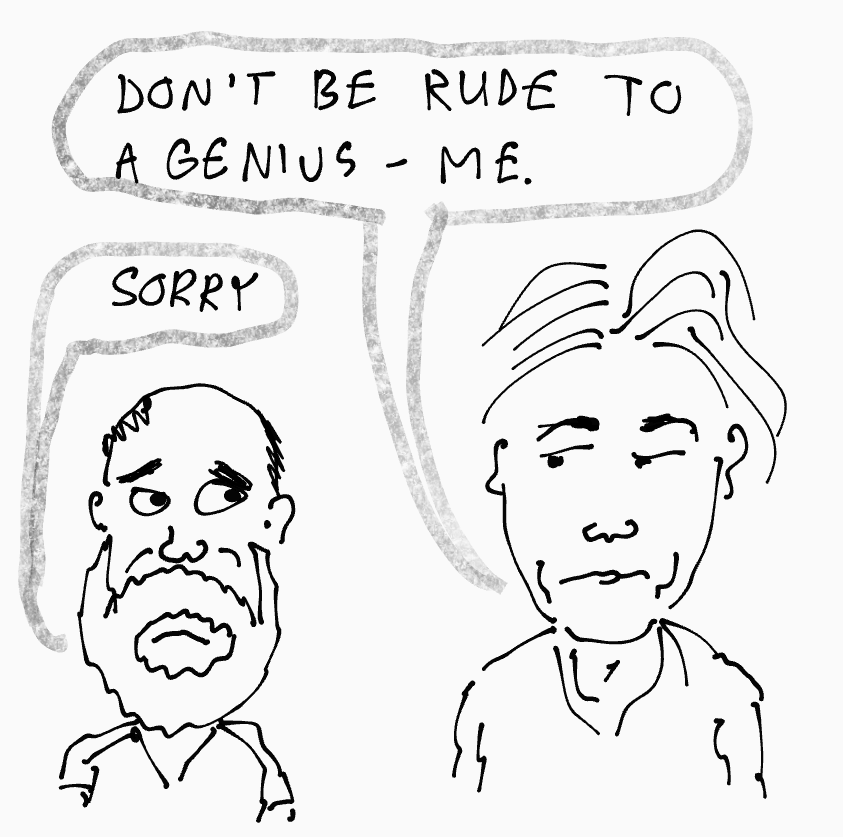 DON'T BE RUDE TO
A GENIUS - ME.
SORRY